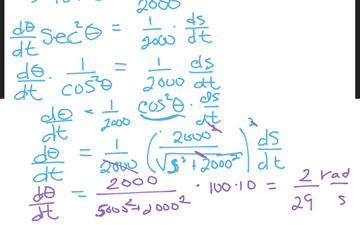 2000
dθ/dt sec²θ = 1/2000 · ds/dt
dθ/dt · 1/cos²θ = 1/2000 ds/dt
dθ/dt = 1/2000 cos²θ · ds/dt
dθ/dt = 1/2000 (2000/√(s²+2000²))² ds/dt
dθ/dt = 2000/(5000²+2000²) · 100·10 = 2/29 rad/s